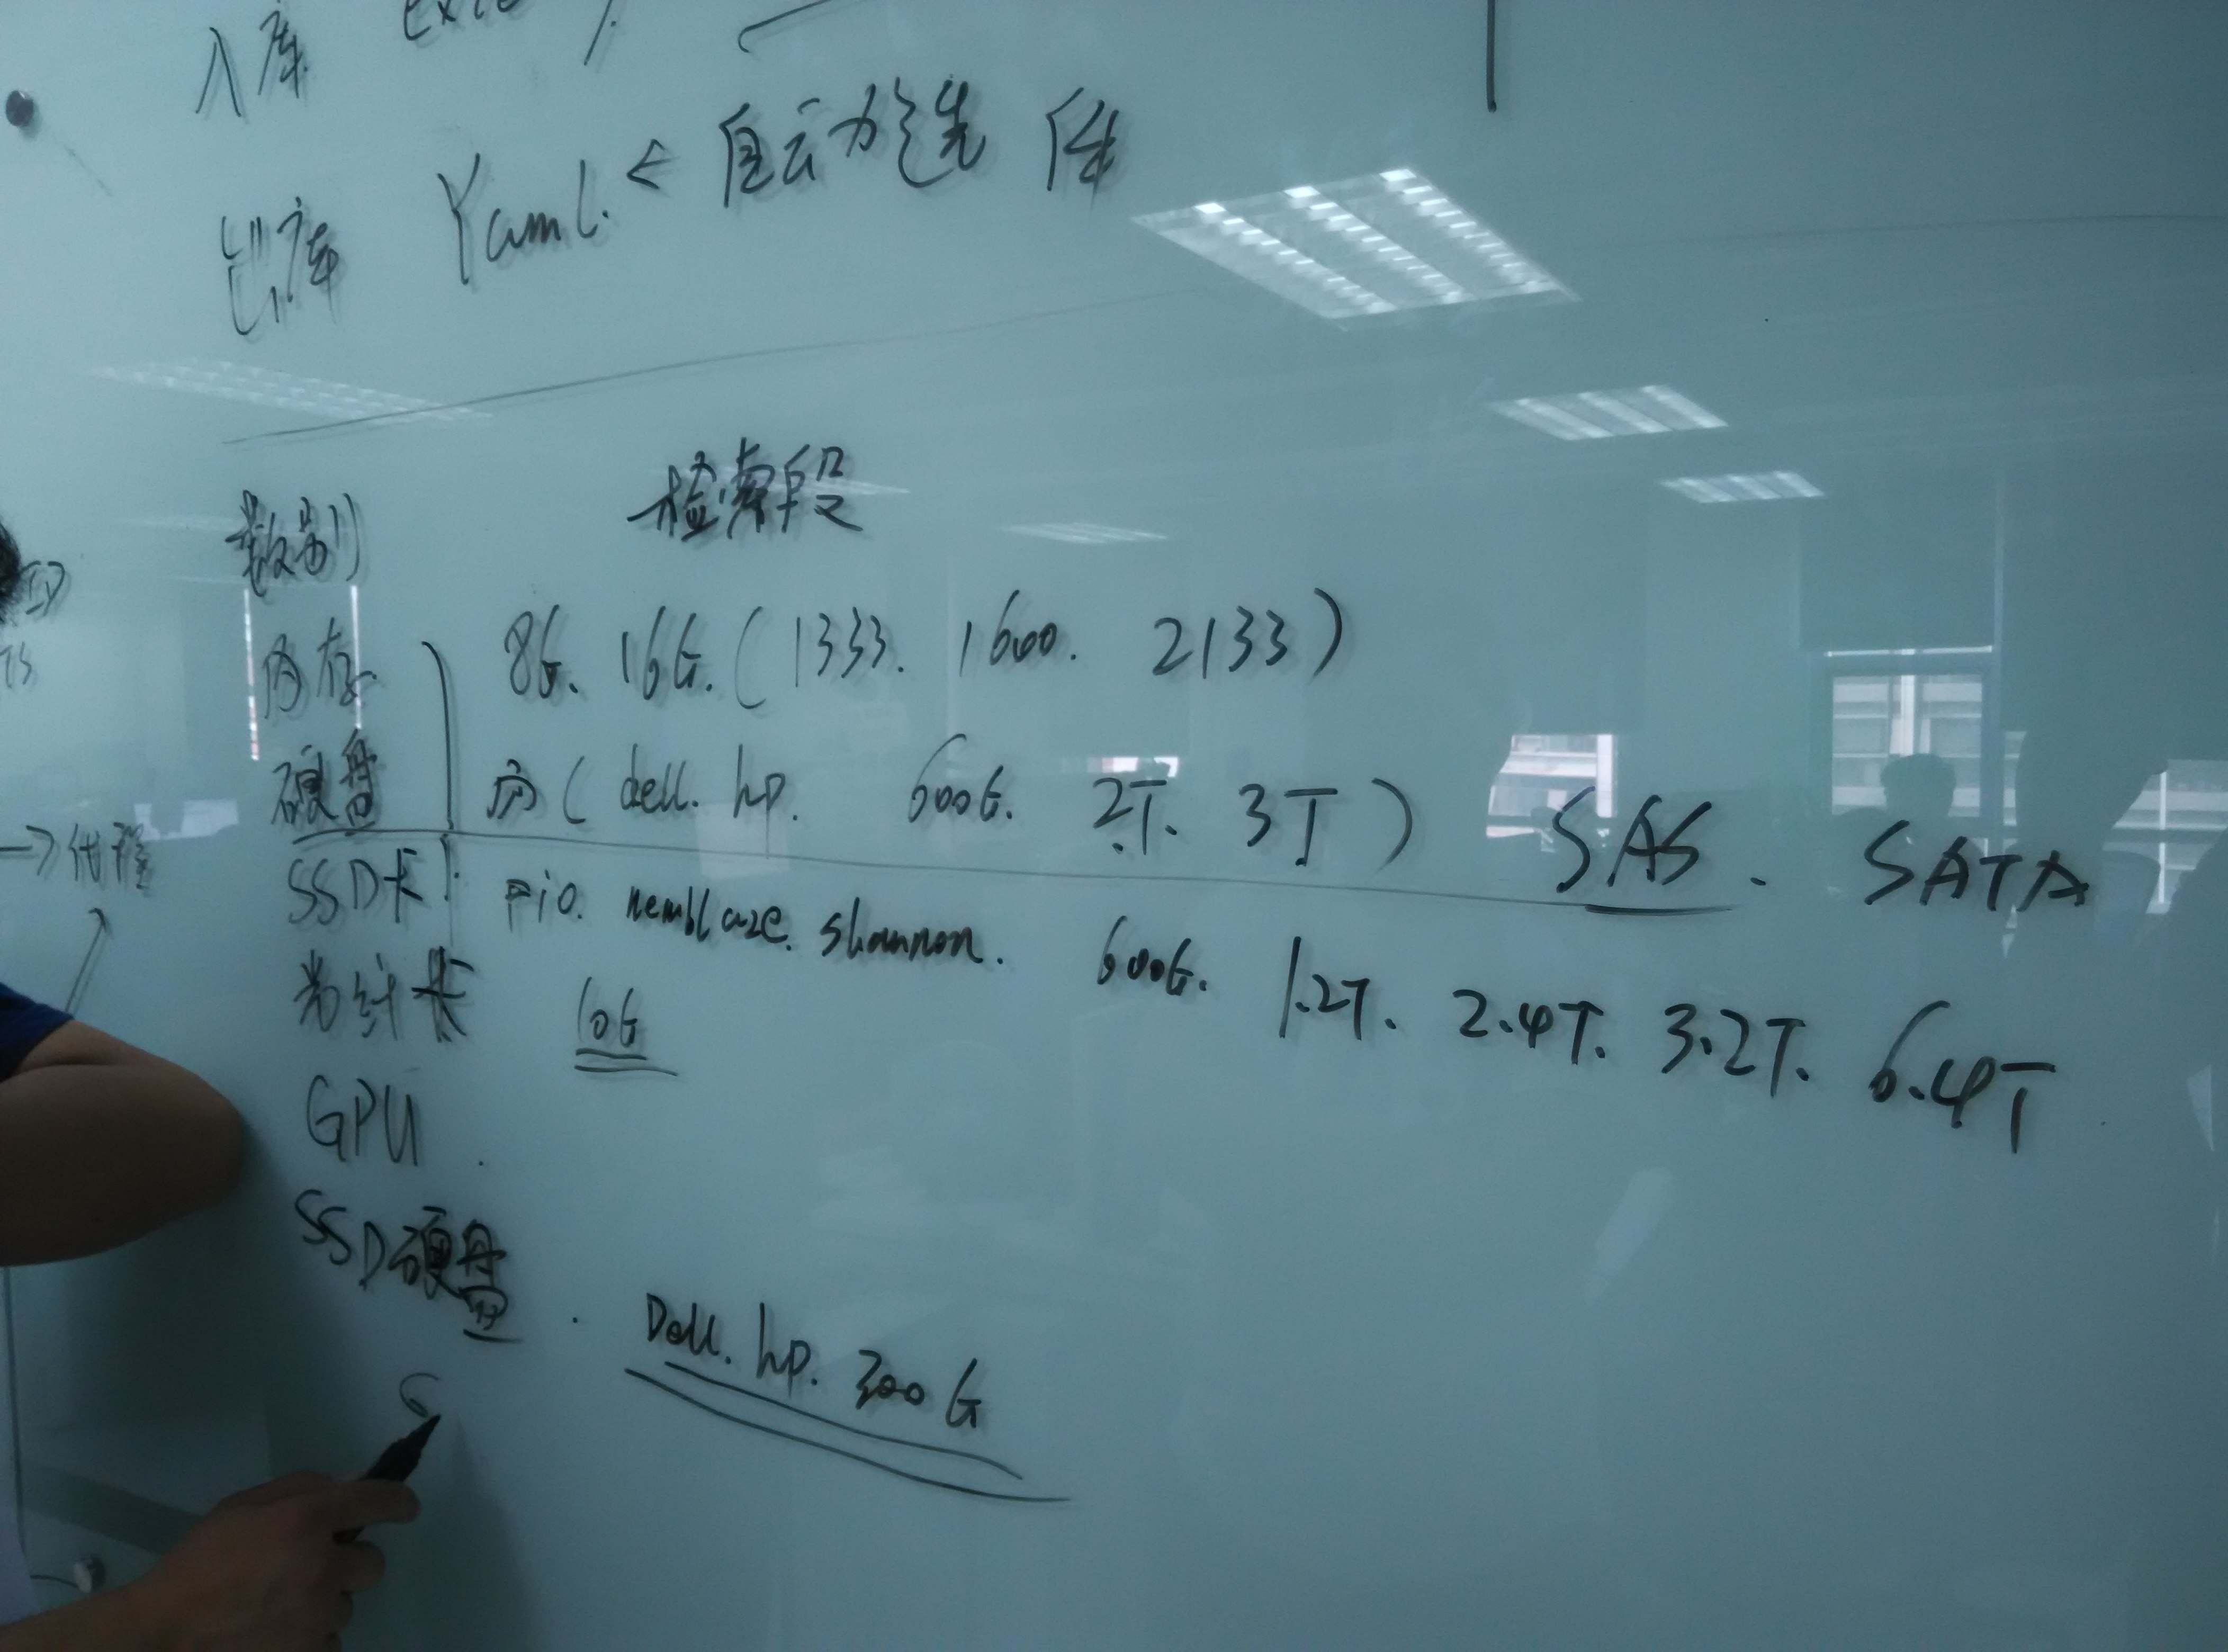 入库
出库 Yaml. ← 自动选件
类别 检索段
内存 8G. 16G. (1333. 1600. 2133)
硬盘 (dell. hp. 600G. 2T. 3T) SAS. SATA
SSD卡 Fio. memblaze. shannon. 600G. 1.2T. 2.4T. 3.2T. 6.4T
光纤卡 10G
GPU.
SSD硬盘. Dell. hp. 300G